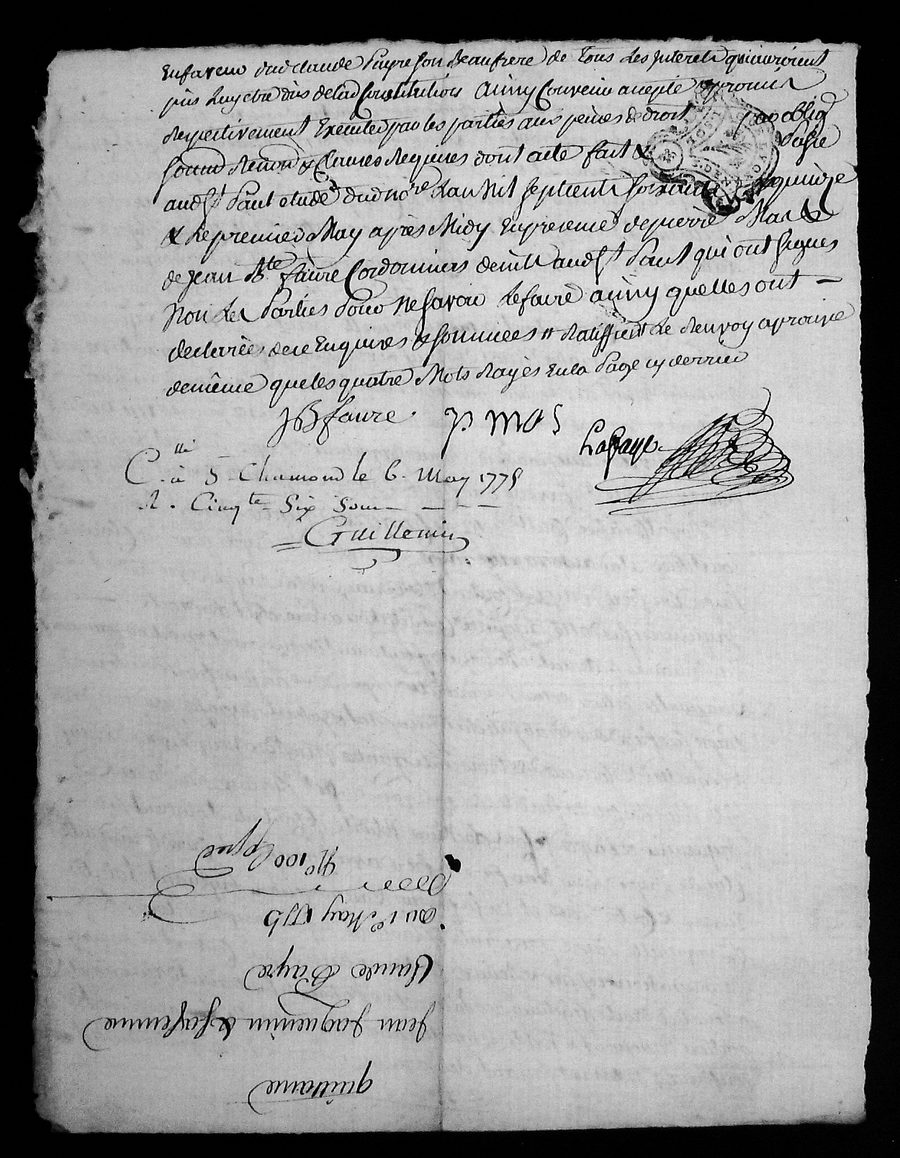 en faveur dud claude Payre son beaufrere de tous les interets qui auroient
pus luy etre dus de lad Constitution ainsy Convenu accepté promis
respectivement Executer par les parties aux peines de droit par oblig
soum renon & clauses requises dont acte fait & passé
aud st Paul etude dud nore l'an mil sept cent soixante quinze
& le premier May après Midy En presence de pierre Mas &
de Jean Bte faure Cordonniers de ville aud st Paul qui ont signes
non les Parties pour ne savoir le faire ainsy quelles ont
declarées de ce Enquises & sommées // ratiffient le renvoy approuvé
de même que les quatre Mots rayés En la Page cy derriere
JB faure p mas
Lafaye
C. à St Chamond le 6. May 1775
R. Cinqte Six Sous
Guillemin
quittance
Jean Jaquemin & sa femme
Claude Payre
du 1er May 1775
No 100